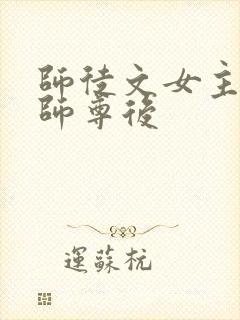 師徒文女主
師尊後
運蘇杭